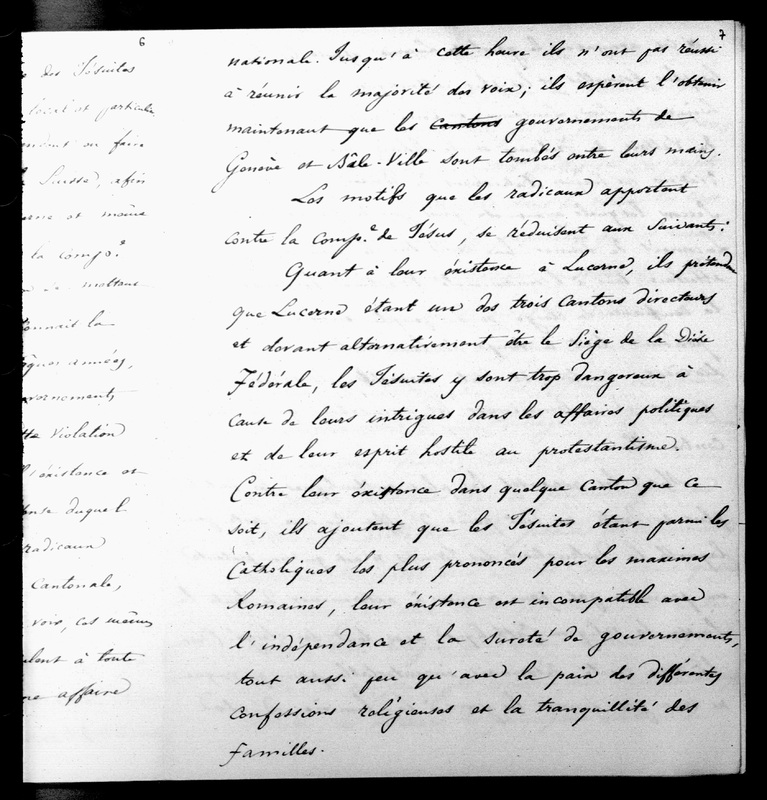 6
des Jésuites
local et particulier
ou faire
Suisse, afin
et même
la comp.e
mettant
la
années,
violation
l'existence et
duquel
radicaux
Cantonale,
voir, ces mêmes
à toute
affaire
7
nationale. Jusqu'à cette heure ils n'ont pas réussi
à réunir la majorité des voix; ils espèrent l'obtenir
maintenant que les cantons gouvernements de
Genève et Bâle-Ville sont tombés entre leurs mains.
Les motifs que les radicaux apportent
contre la comp.e de Jésus, se réduisent aux Suivants:
Quant à leur éxistence à Lucerne, ils prétendent
que Lucerne étant un des trois Cantons directeurs
et devant alternativement être le Siège de la Diète
Fédérale, les Jésuites y sont trop dangereux à
cause de leurs intrigues dans les affaires politiques
et de leur esprit hostile au protestantisme.
Contre leur éxistence dans quelque Canton que ce
soit, ils ajoutent que les Jésuites étant parmi les
Catholiques les plus prononcés pour les maximes
Romaines, leur éxistence est incompatible avec
l'indépendance et la sureté de gouvernements,
tout aussi peu qu'avec la paix des différentes
confessions religieuses et la tranquillité des
familles.